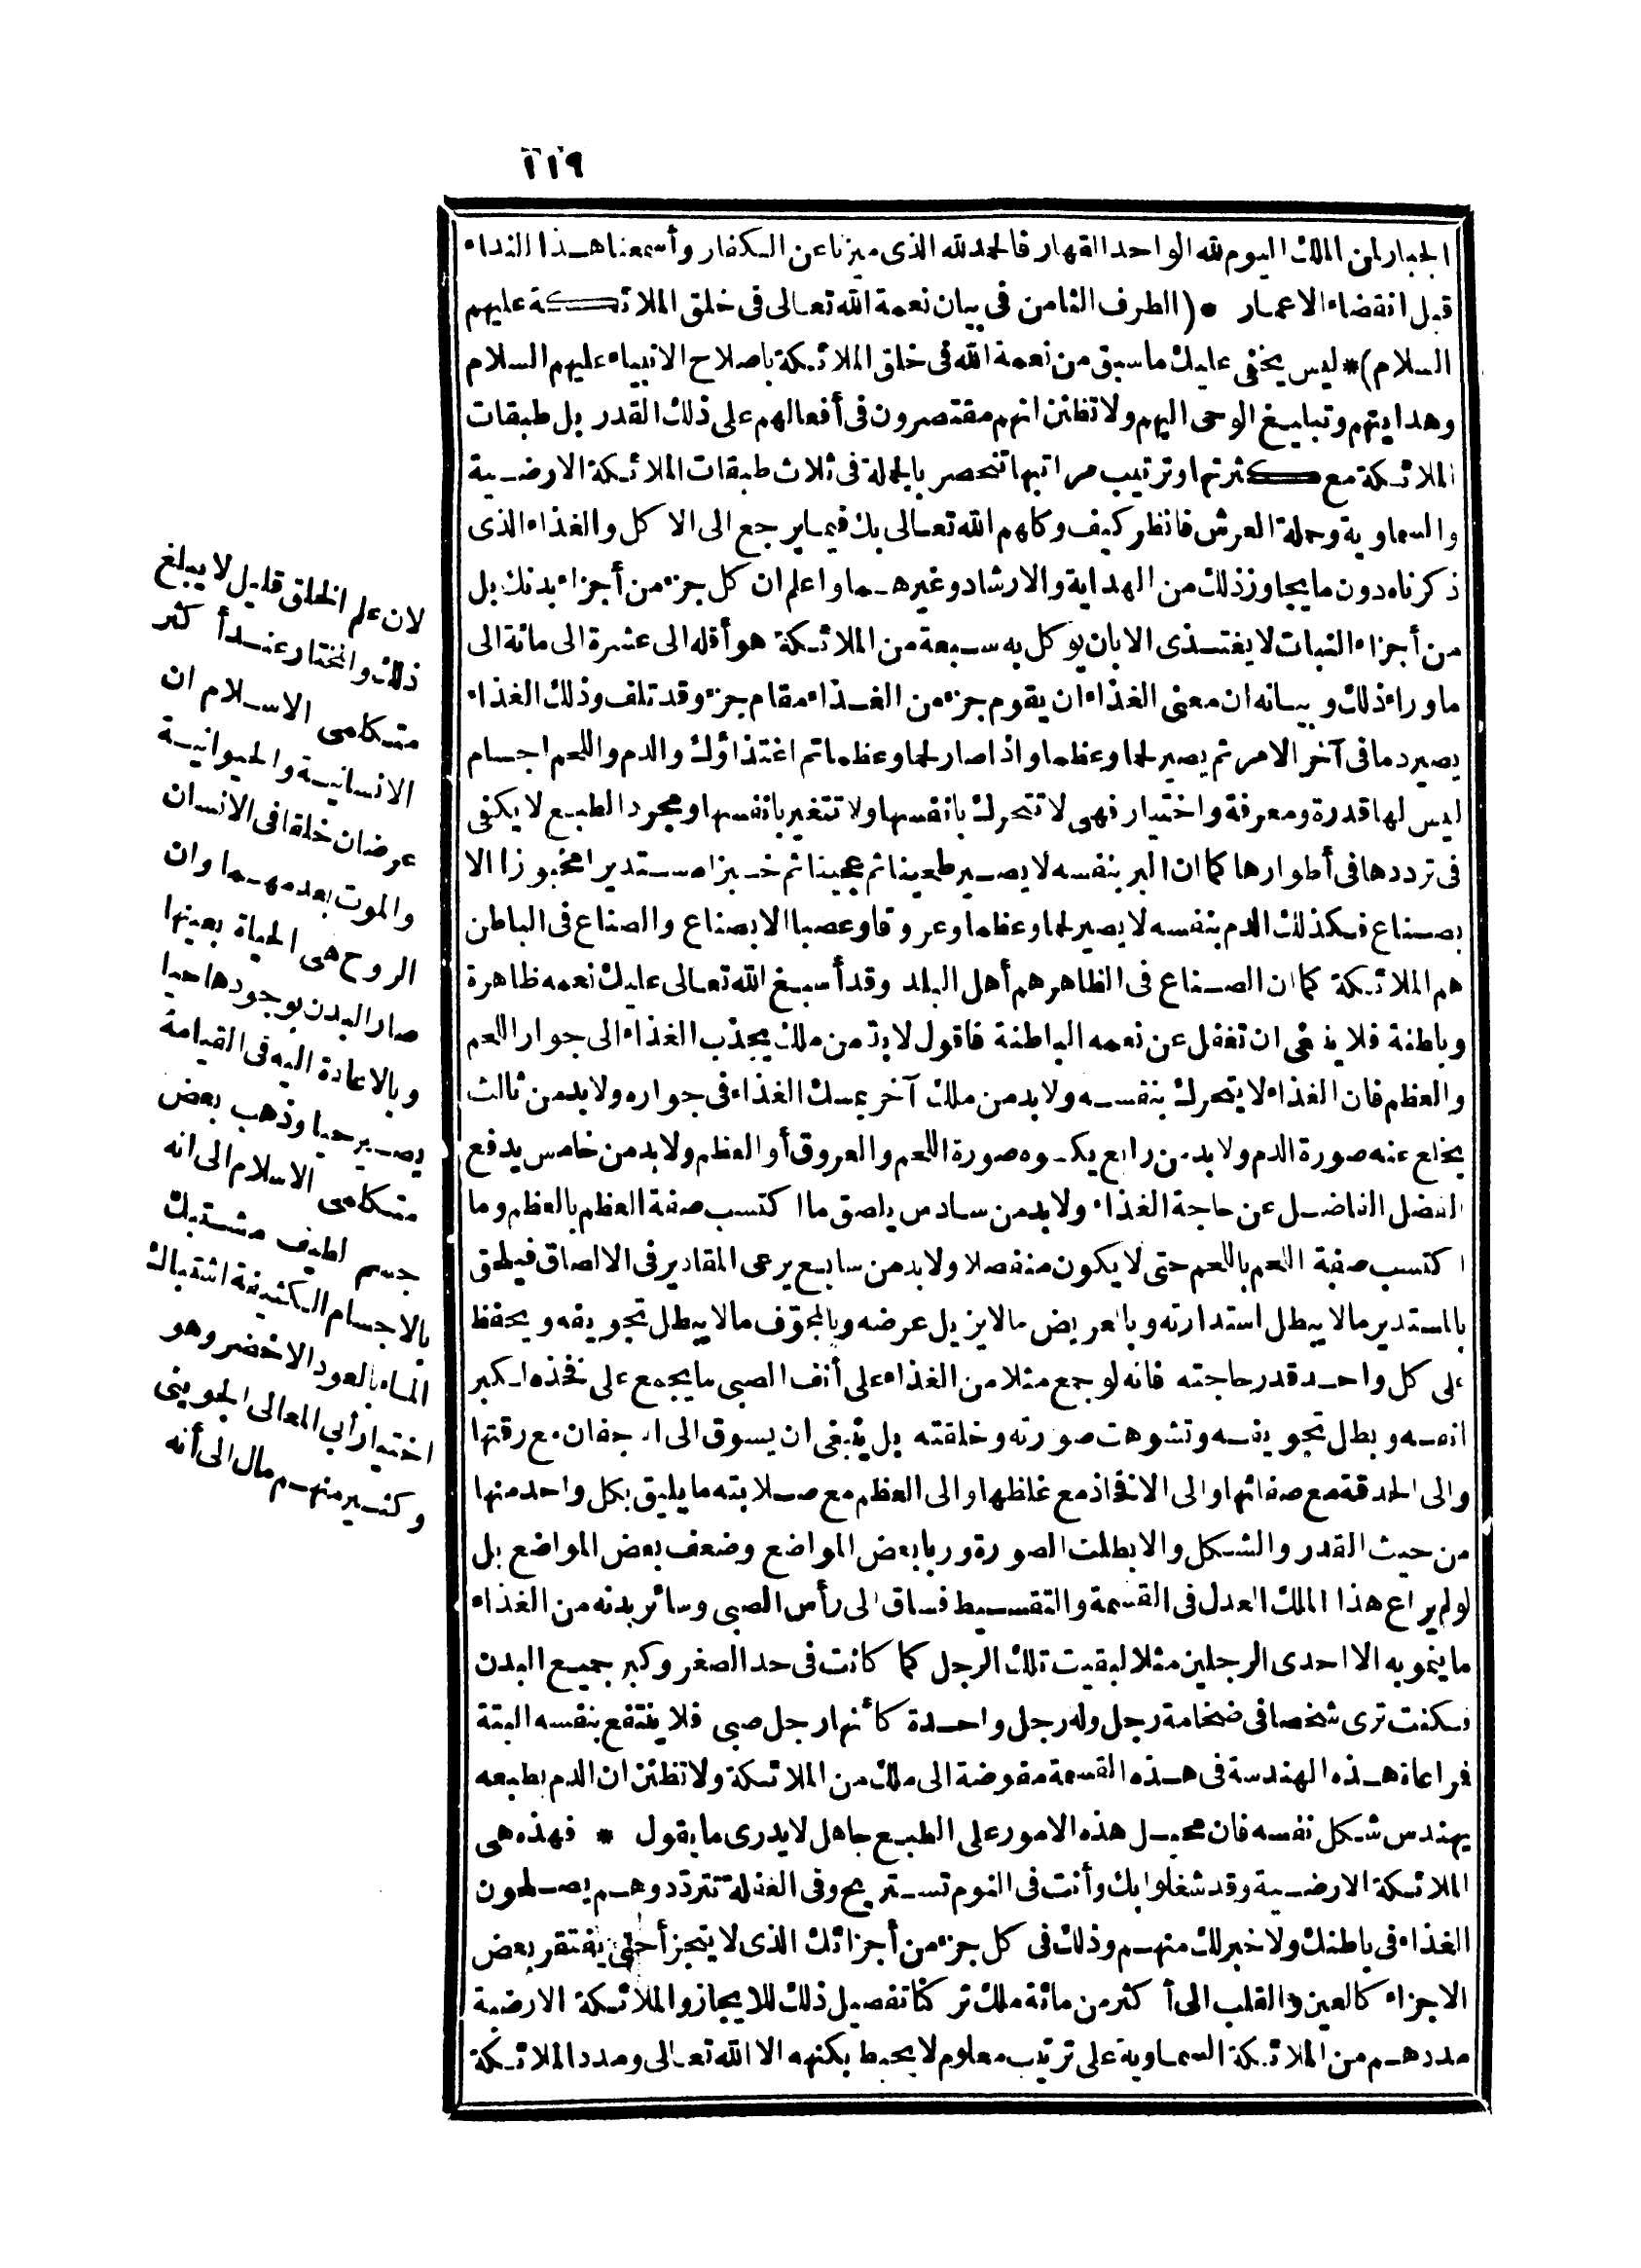 ١١٩
الجبار لمن الملك اليوم لله الواحد القهار فالحمد لله الذى ميزنا عن الكفار وأسمعنا هذا النداء
قبل انقضاء الاعمار * (الطرف الثامن فى بيان نعمة الله تعالى فى خلق الملائكة عليهم
السلام)* ليس يخفى عليك ما سبق من نعمة الله فى خلق الملائكة باصلاح الانبياء عليهم السلام
وهدايتهم وتبليغ الوحى اليهم ولا تظنن انهم مقتصرون فى أفعالهم على ذلك القدر بل طبقات
الملائكة مع كثرتها وترتيب مراتبها تنحصر بالجملة فى ثلاث طبقات الملائكة الارضية
والسماوية وحملة العرش فانظر كيف وكلهم الله تعالى بك فيما يرجع الى الاكل والغذاء الذى
ذكرناه دون ما يجاوز ذلك من الهداية والارشاد وغيرهما واعلم ان كل جزء من أجزاء بدنك بل
من أجزاء النبات لا يغتذى الا بان يوكل به سبعة من الملائكة هو أقله الى عشرة الى مائة الى
ما وراء ذلك وبيانه ان معنى الغذاء ان يقوم جزء من الغذاء مقام جزء وقد تلف وذلك الغذاء
يصير دما فى آخر الامر ثم يصير لحما وعظما واذا صار لحما وعظما تم اغتذاؤك والدم واللحم اجسام
ليس لها قدرة ومعرفة واختيار فهى لا تتحرك بانفسها ولا تتغير بانفسها ومجرد الطبع لا يكفى
فى ترددها فى أطوارها كما ان البر بنفسه لا يصير طحينا ثم عجينا ثم خبزا مستديرا مخبوزا الا
بصناع فكذلك الدم بنفسه لا يصير لحما وعظما وعروقا وعصبا الا بصناع والصناع فى الباطن
هم الملائكة كما ان الصناع فى الظاهر هم أهل البلد وقد أسبغ الله تعالى عليك نعمه ظاهرة
وباطنة فلا ينبغى ان تغفل عن نعمه الباطنة فاقول لا بد من ملك يجذب الغذاء الى جوار اللحم
والعظم فان الغذاء لا يتحرك بنفسه ولا بد من ملك آخر يمسك الغذاء فى جواره ولا بد من ثالث
يخلع عنه صورة الدم ولا بد من رابع يكسوه صورة اللحم والعروق أو العظم ولا بد من خامس يدفع
الفضل الفاضل عن حاجة الغذاء ولا بد من سادس يلصق ما اكتسب صفة العظم بالعظم وما
اكتسب صفة اللحم باللحم حتى لا يكون منفصلا ولا بد من سابع يرعى المقادير فى الالصاق فيلحق
بالمستدير ما لا يبطل استدارته وبالعريض ما لا يزيل عرضه وبالمجوف ما لا يبطل تجويفه ويحفظ
على كل واحد قدر حاجته فانه لو جمع مثلا من الغذاء على أنف الصبى ما يجمع على فخذه لكبر
انفه وبطل تجويفه وتشوهت صورته وخلقته بل ينبغى ان يسوق الى الاجفان مع رقتها
والى الحدقة مع صفائها والى الافخاذ مع غلظها والى العظم مع صلابته ما يليق بكل واحد منها
من حيث القدر والشكل والا بطلت الصورة وربا بعض المواضع وضعف بعض المواضع بل
لو لم يراع هذا الملك العدل فى القسمة والتقسيط فساق الى رأس الصبى وسائر بدنه من الغذاء
ما ينمو به الا احدى الرجلين مثلا لبقيت تلك الرجل كما كانت فى حد الصغر وكبر جميع البدن
فكنت ترى شخصا فى ضخامة رجل وله رجل واحدة كأنها رجل صبى فلا ينتفع بنفسه البتة
فمراعاة هذه الهندسة فى هذه القسمة مفوضة الى ملك من الملائكة ولا تظنن ان الدم بطبعه
يهندس شكل نفسه فان محيل هذه الامور على الطبع جاهل لا يدرى ما يقول * فهذه هى
الملائكة الارضية وقد شغلوا بك وأنت فى النوم تستريح وفى الغفلة تتردد وهم يصلحون
الغذاء فى باطنك ولا خبر لك منهم وذلك فى كل جزء من أجزائك الذى لا يتجزأ حتى يفتقر بعض
الاجزاء كالعين والقلب الى أكثر من مائة ملك تركنا تفصيل ذلك للايجاز والملائكة الارضية
مددهم من الملائكة السماوية على ترتيب معلوم لا يحيط بكنهه الا الله تعالى ومدد الملائكة
لان علم الخلق قليل لا يبلغ
ذلك والمختار عند أكثر
متكلمى الاسلام ان
الانسانية والحيوانية
عرضان خلقا فى الانسان
والموت بعدمهما وان
الروح هى الحياة بعينها
صار البدن بوجودها حيا
وبالاعادة اليه فى القيامة
يصير حيا وذهب بعض
متكلمى الاسلام الى انه
جسم لطيف مشتبك
بالاجسام الكثيفة اشتباك
الماء بالعود الاخضر وهو
اختيار أبى المعالى الجوينى
وكثير منهم مال الى أنه